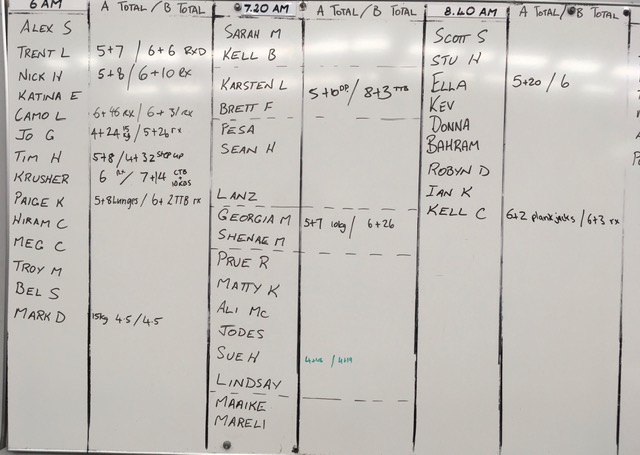 6 AM A TOTAL / B TOTAL
ALEX S
TRENT L 5+7 / 6+6 RXD
NICK H 5+8 / 6+10 RX
KATINA E
CAMO L 6+46 RX / 6+31 RX
JO G 4+24 15kg / 5+26 rx
TIM H 5+8 / 4+32 STEP UP
KRUSHER 6 / 7+14 CTB
PAIGE K 5+8 lunges / 6+2 TTB rx
HIRAM C
MEG C
TROY M
BEL S
MARK D 15kg 4.5 / 4.5
7.20 AM A TOTAL / B TOTAL
SARAH M
KELL B
KARSTEN L 5+10 DP / 8+3 TTB
BRETT F
PESA
SEAN H
LANZ
GEORGIA M 5+7 10kg / 6+26
SHENAE M
PRUE R
MATTY K
ALI MC
JODES
SUE H
LINDSAY
MAAIKE
MARELI
8.40 AM A TOTAL / B TOTAL
SCOTT S
STU H
ELLA 5+20 / 6
KEV
DONNA
BAHRAM
ROBYN D
IAN K
KELL C 6+2 plank jacks / 6+3 rx